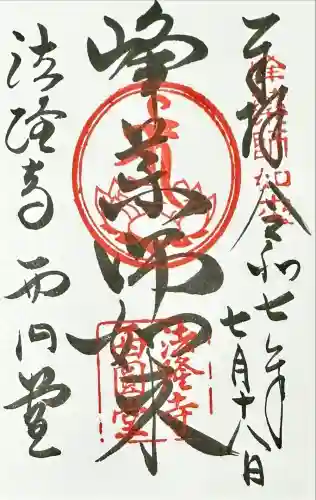 奉拝 令和七年
七月十八日
峰薬師如来
法隆寺 西円堂
法隆寺
西円堂